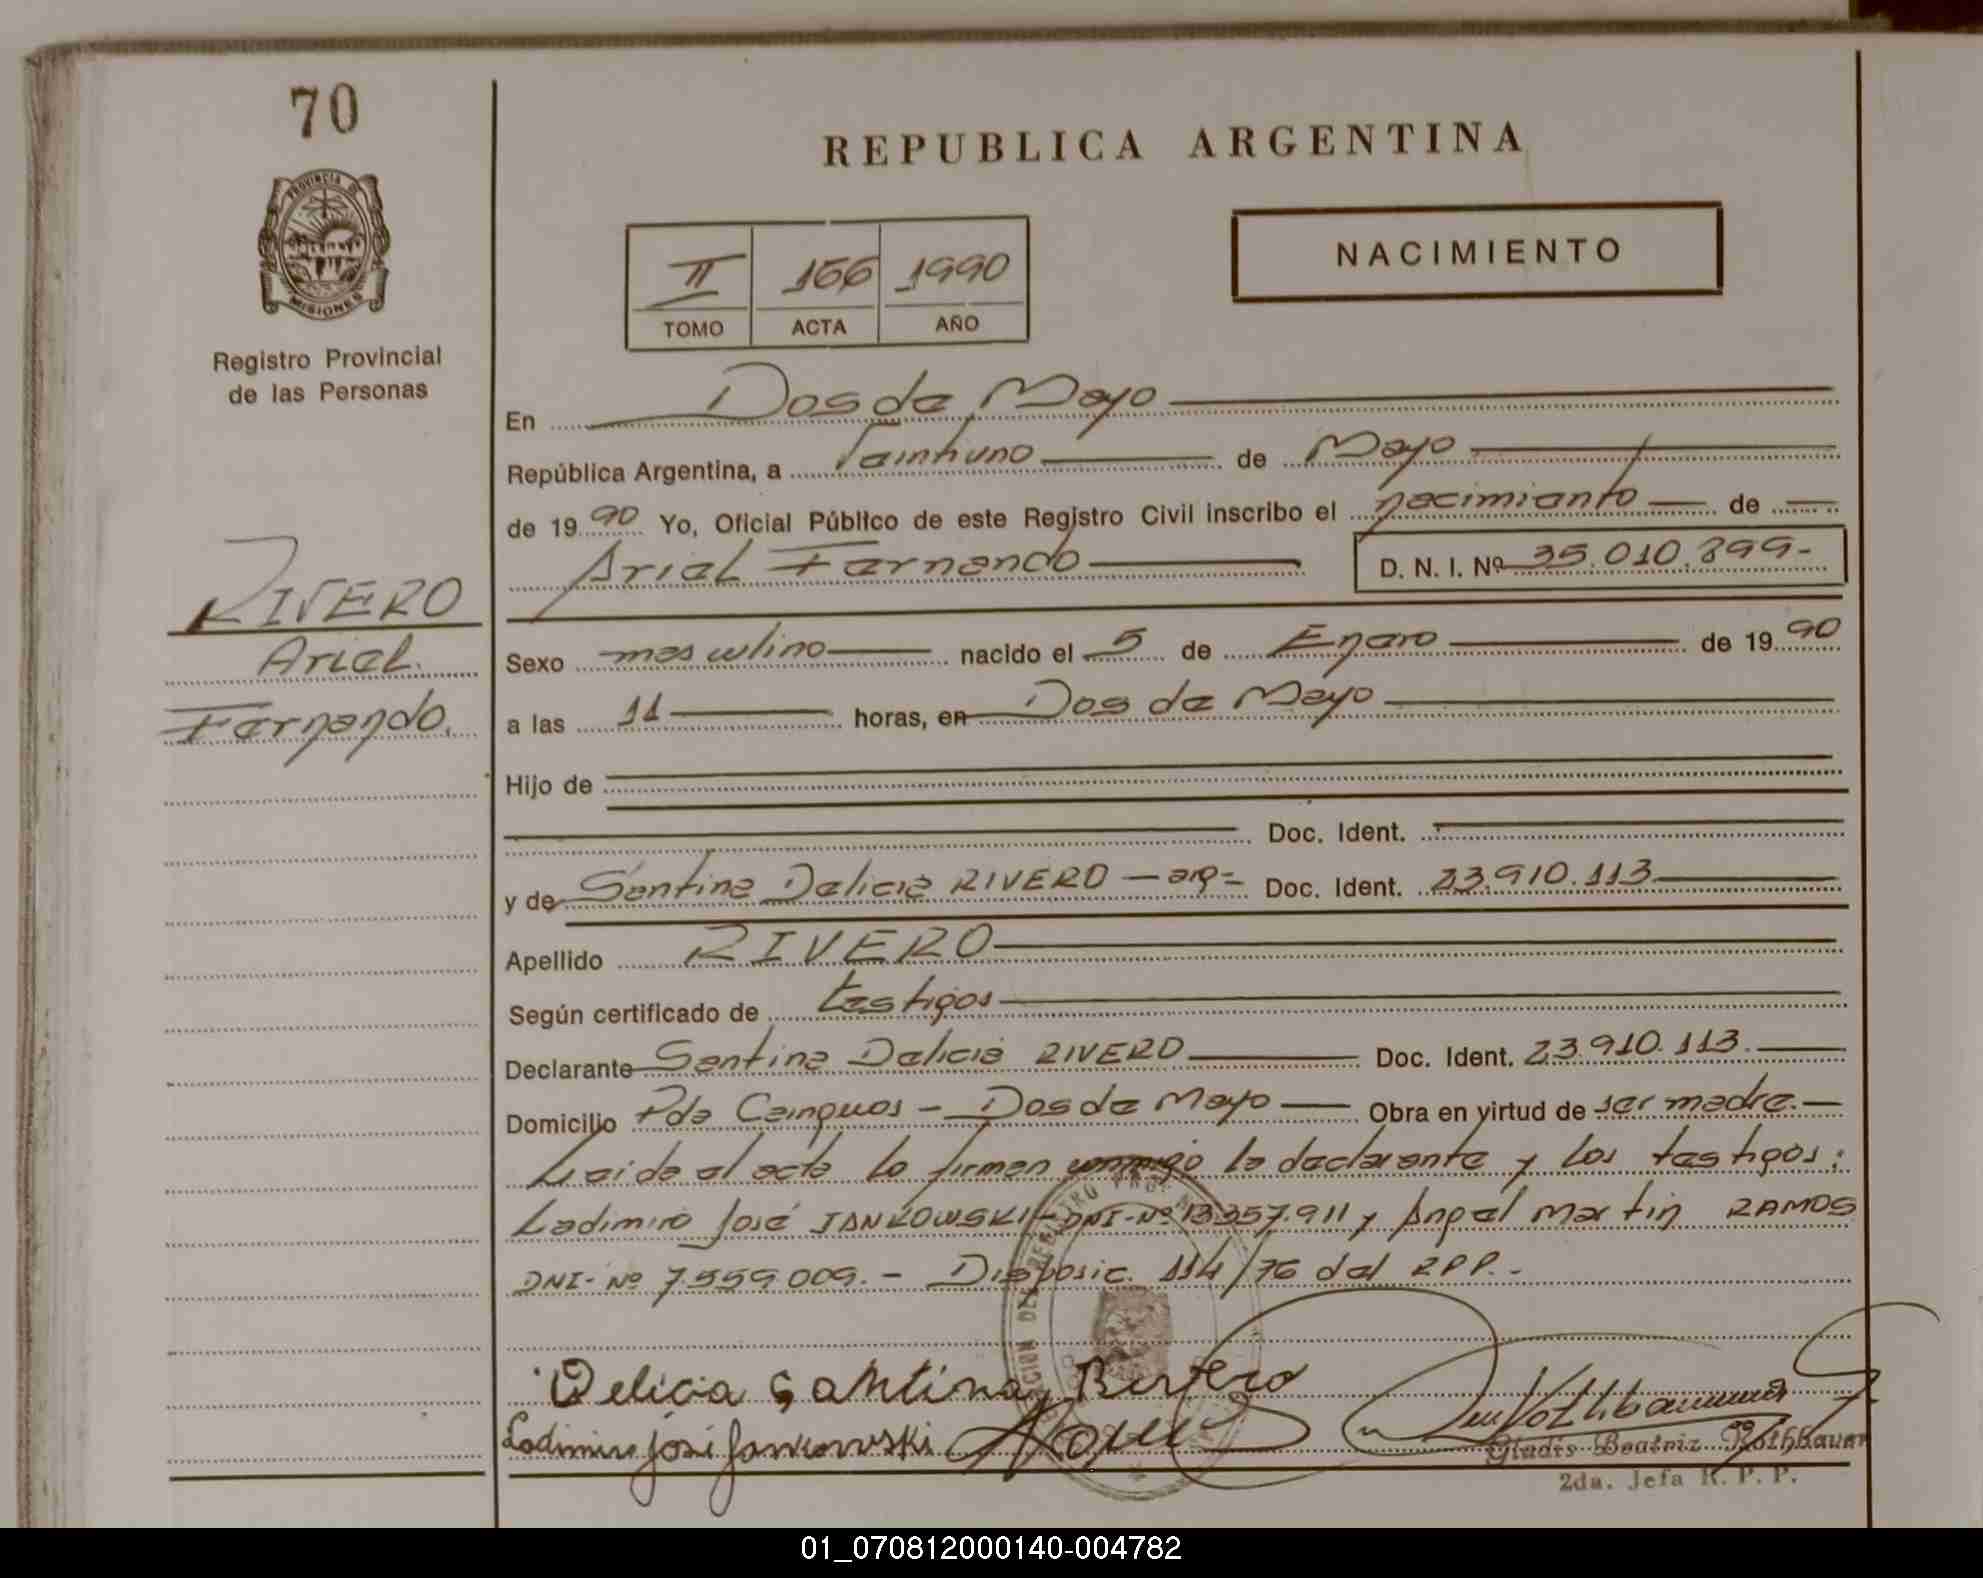 70
REPUBLICA ARGENTINA
PROVINCIA DE
MISIONES
Registro Provincial
de las Personas
II 166 1990
TOMO ACTA AÑO
NACIMIENTO
En Dos de Mayo
República Argentina, a Veintiuno de Mayo
de 1990 Yo, Oficial Público de este Registro Civil inscribo el nacimiento de
Ariel Fernando D. N. I. Nº 35.010.899-
RIVERO
Ariel
Fernando.
Sexo masculino nacido el 5 de Enero de 1990
a las 11 horas, en Dos de Mayo
Hijo de
Doc. Ident.
y de Santina Delicia RIVERO - arg- Doc. Ident. 23.910.113
Apellido RIVERO
Según certificado de testigos
Declarante Santina Delicia RIVERO Doc. Ident. 23.910.113.
Domicilio Pde Cainguas - Dos de Mayo Obra en virtud de ser madre.
Leida el acta la firman conmigo la declarante y los testigos:
Ladimiro José JANKOWSKI - DNI-Nº 13357.911 y Angel Martin RAMOS
DNI-Nº 7.559.009.- Disposic. 114/76 del RPP.-
Delicia Santina Rivero
Ladimiro josé Jankowski
Gladis Beatriz Rothbauer
2da. Jefa R. P. P.
01_070812000140-004782